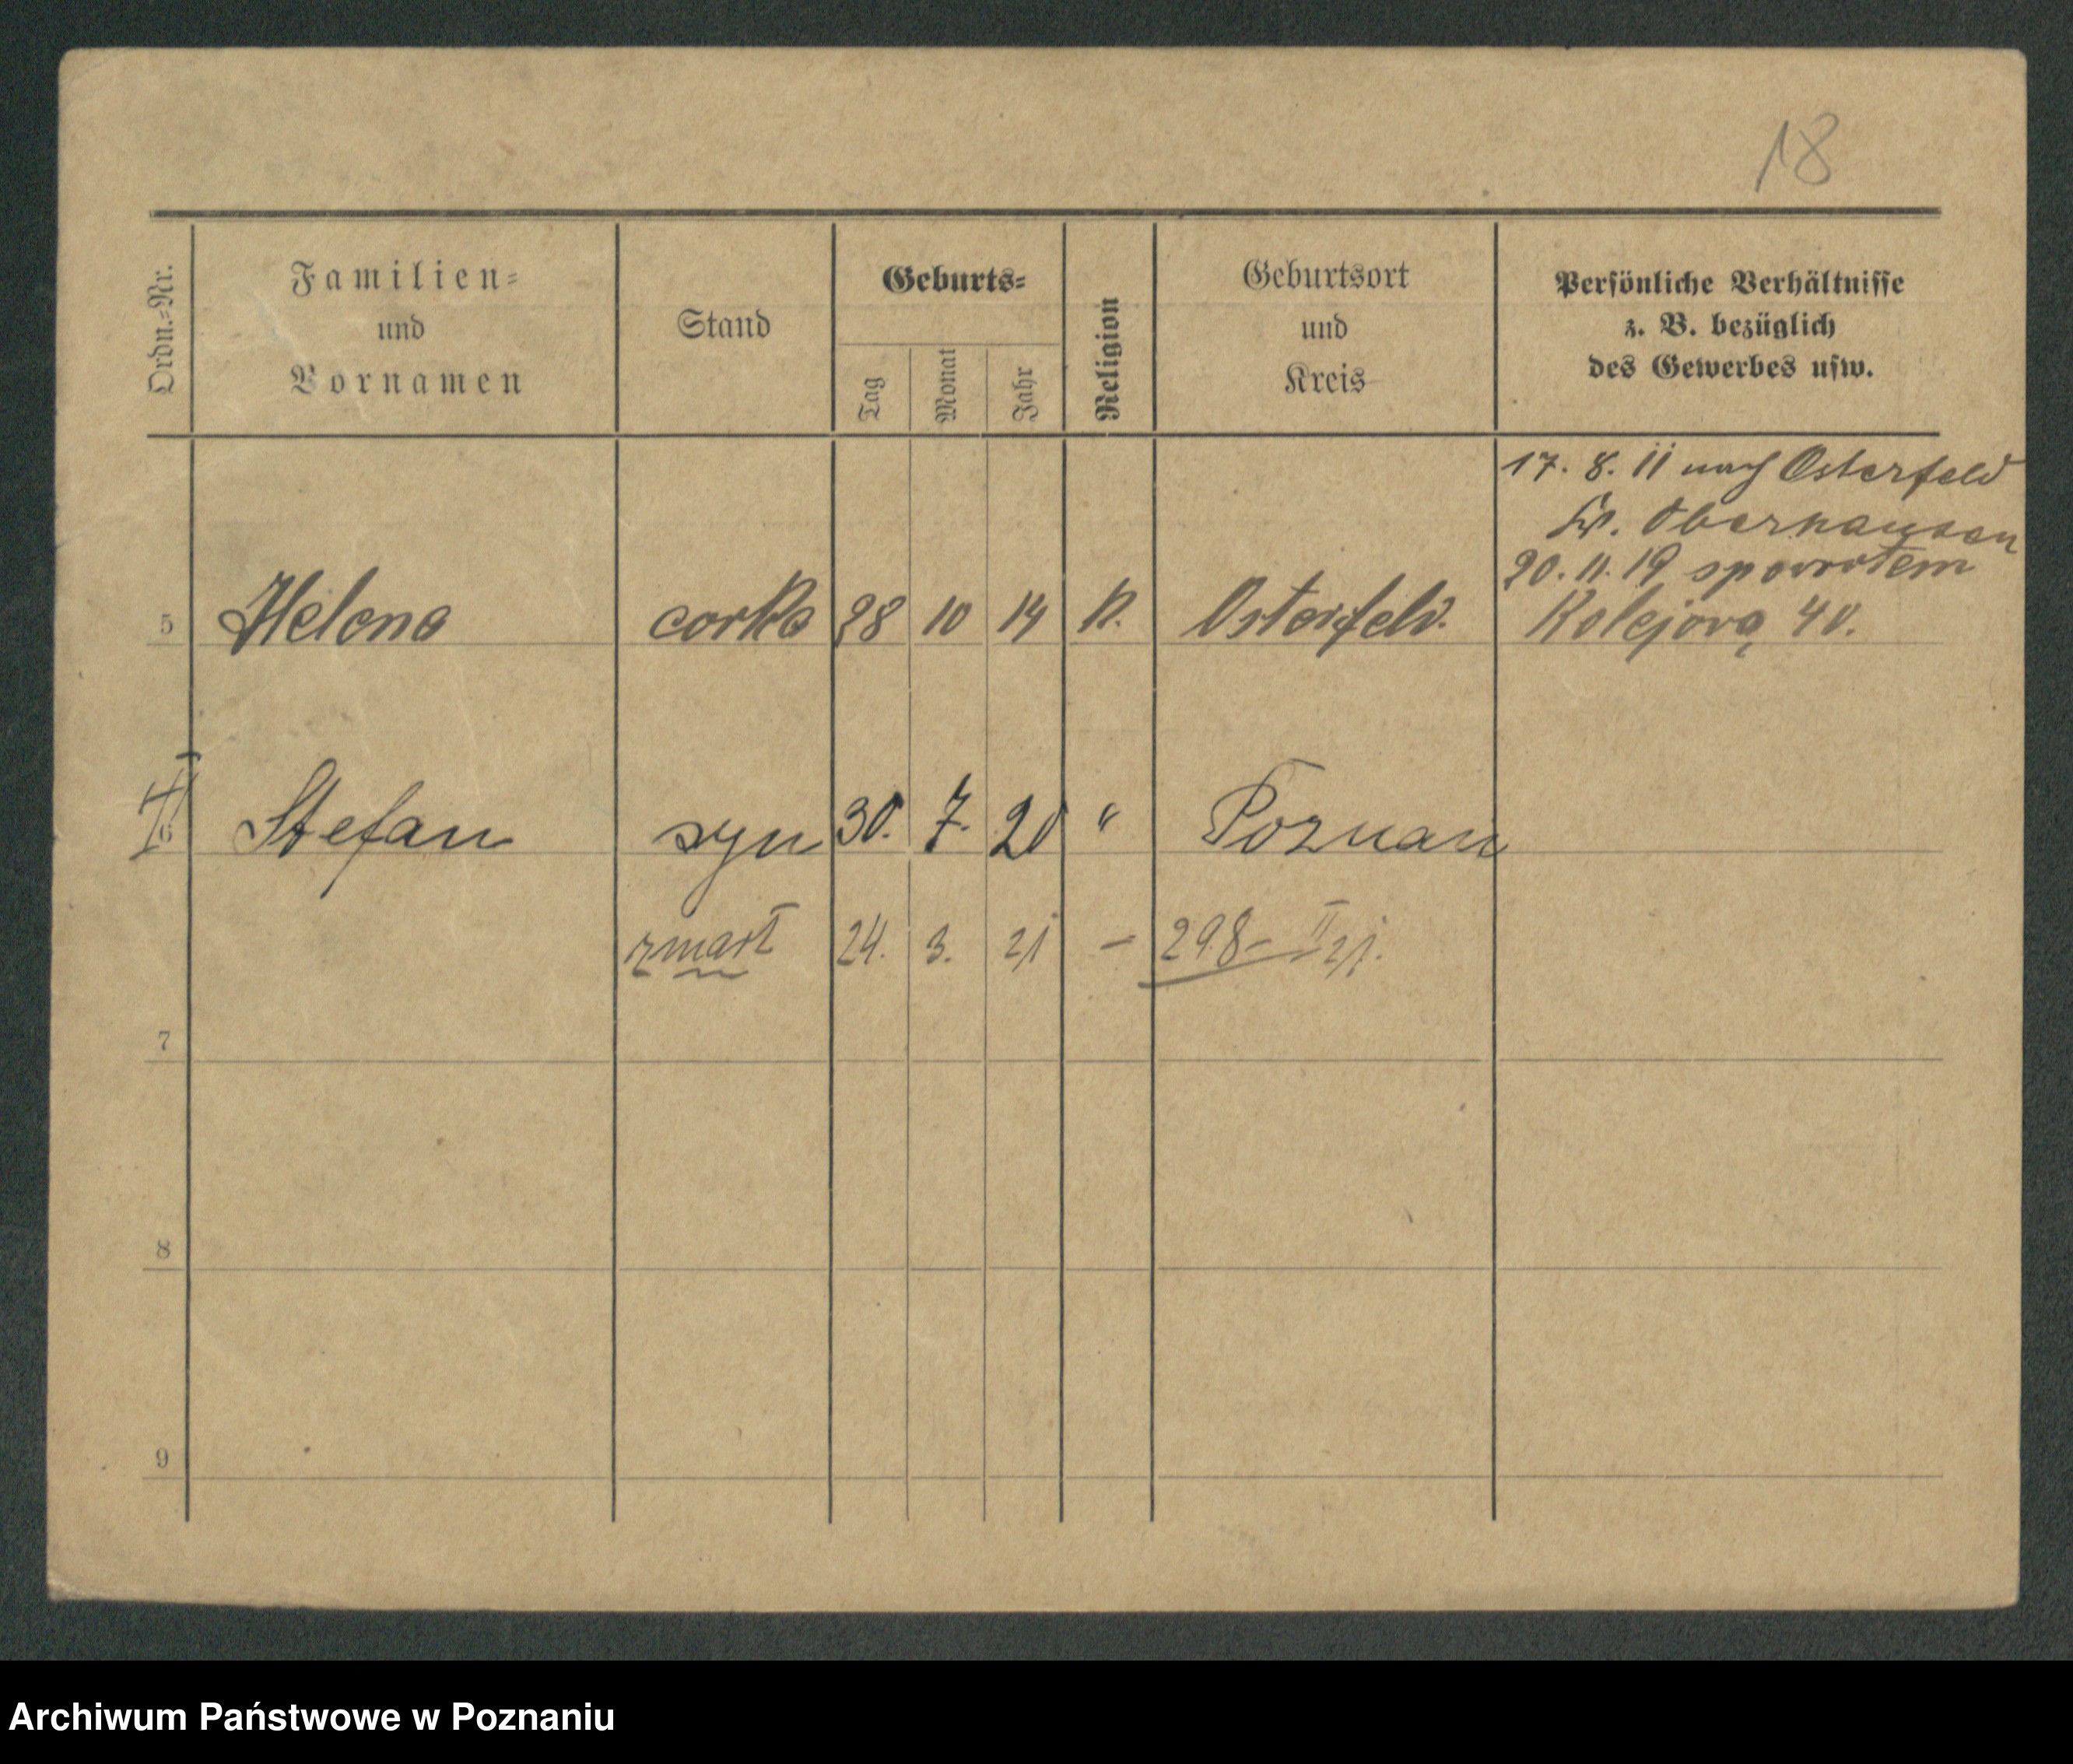 18
Ordn.-Nr.
Familien-
und
Vornamen
Stand
Geburts-
Tag
Monat
Jahr
Religion
Geburtsort
und
Kreis
Persönliche Verhältnisse
z. B. bezüglich
des Gewerbes usw.
17. 8. 11 nach Osterfeld
Kr. Oberhausen
20. 11. 19 spowrotem
5 Helena corka 28 10 14 K. Osterfeld. Kolejowa 40.
6 Stefan syn 30. 7. 20 " Poznan
zmarł 24. 3. 21 – 298 – II 21.
7
8
9
Archiwum Państwowe w Poznaniu